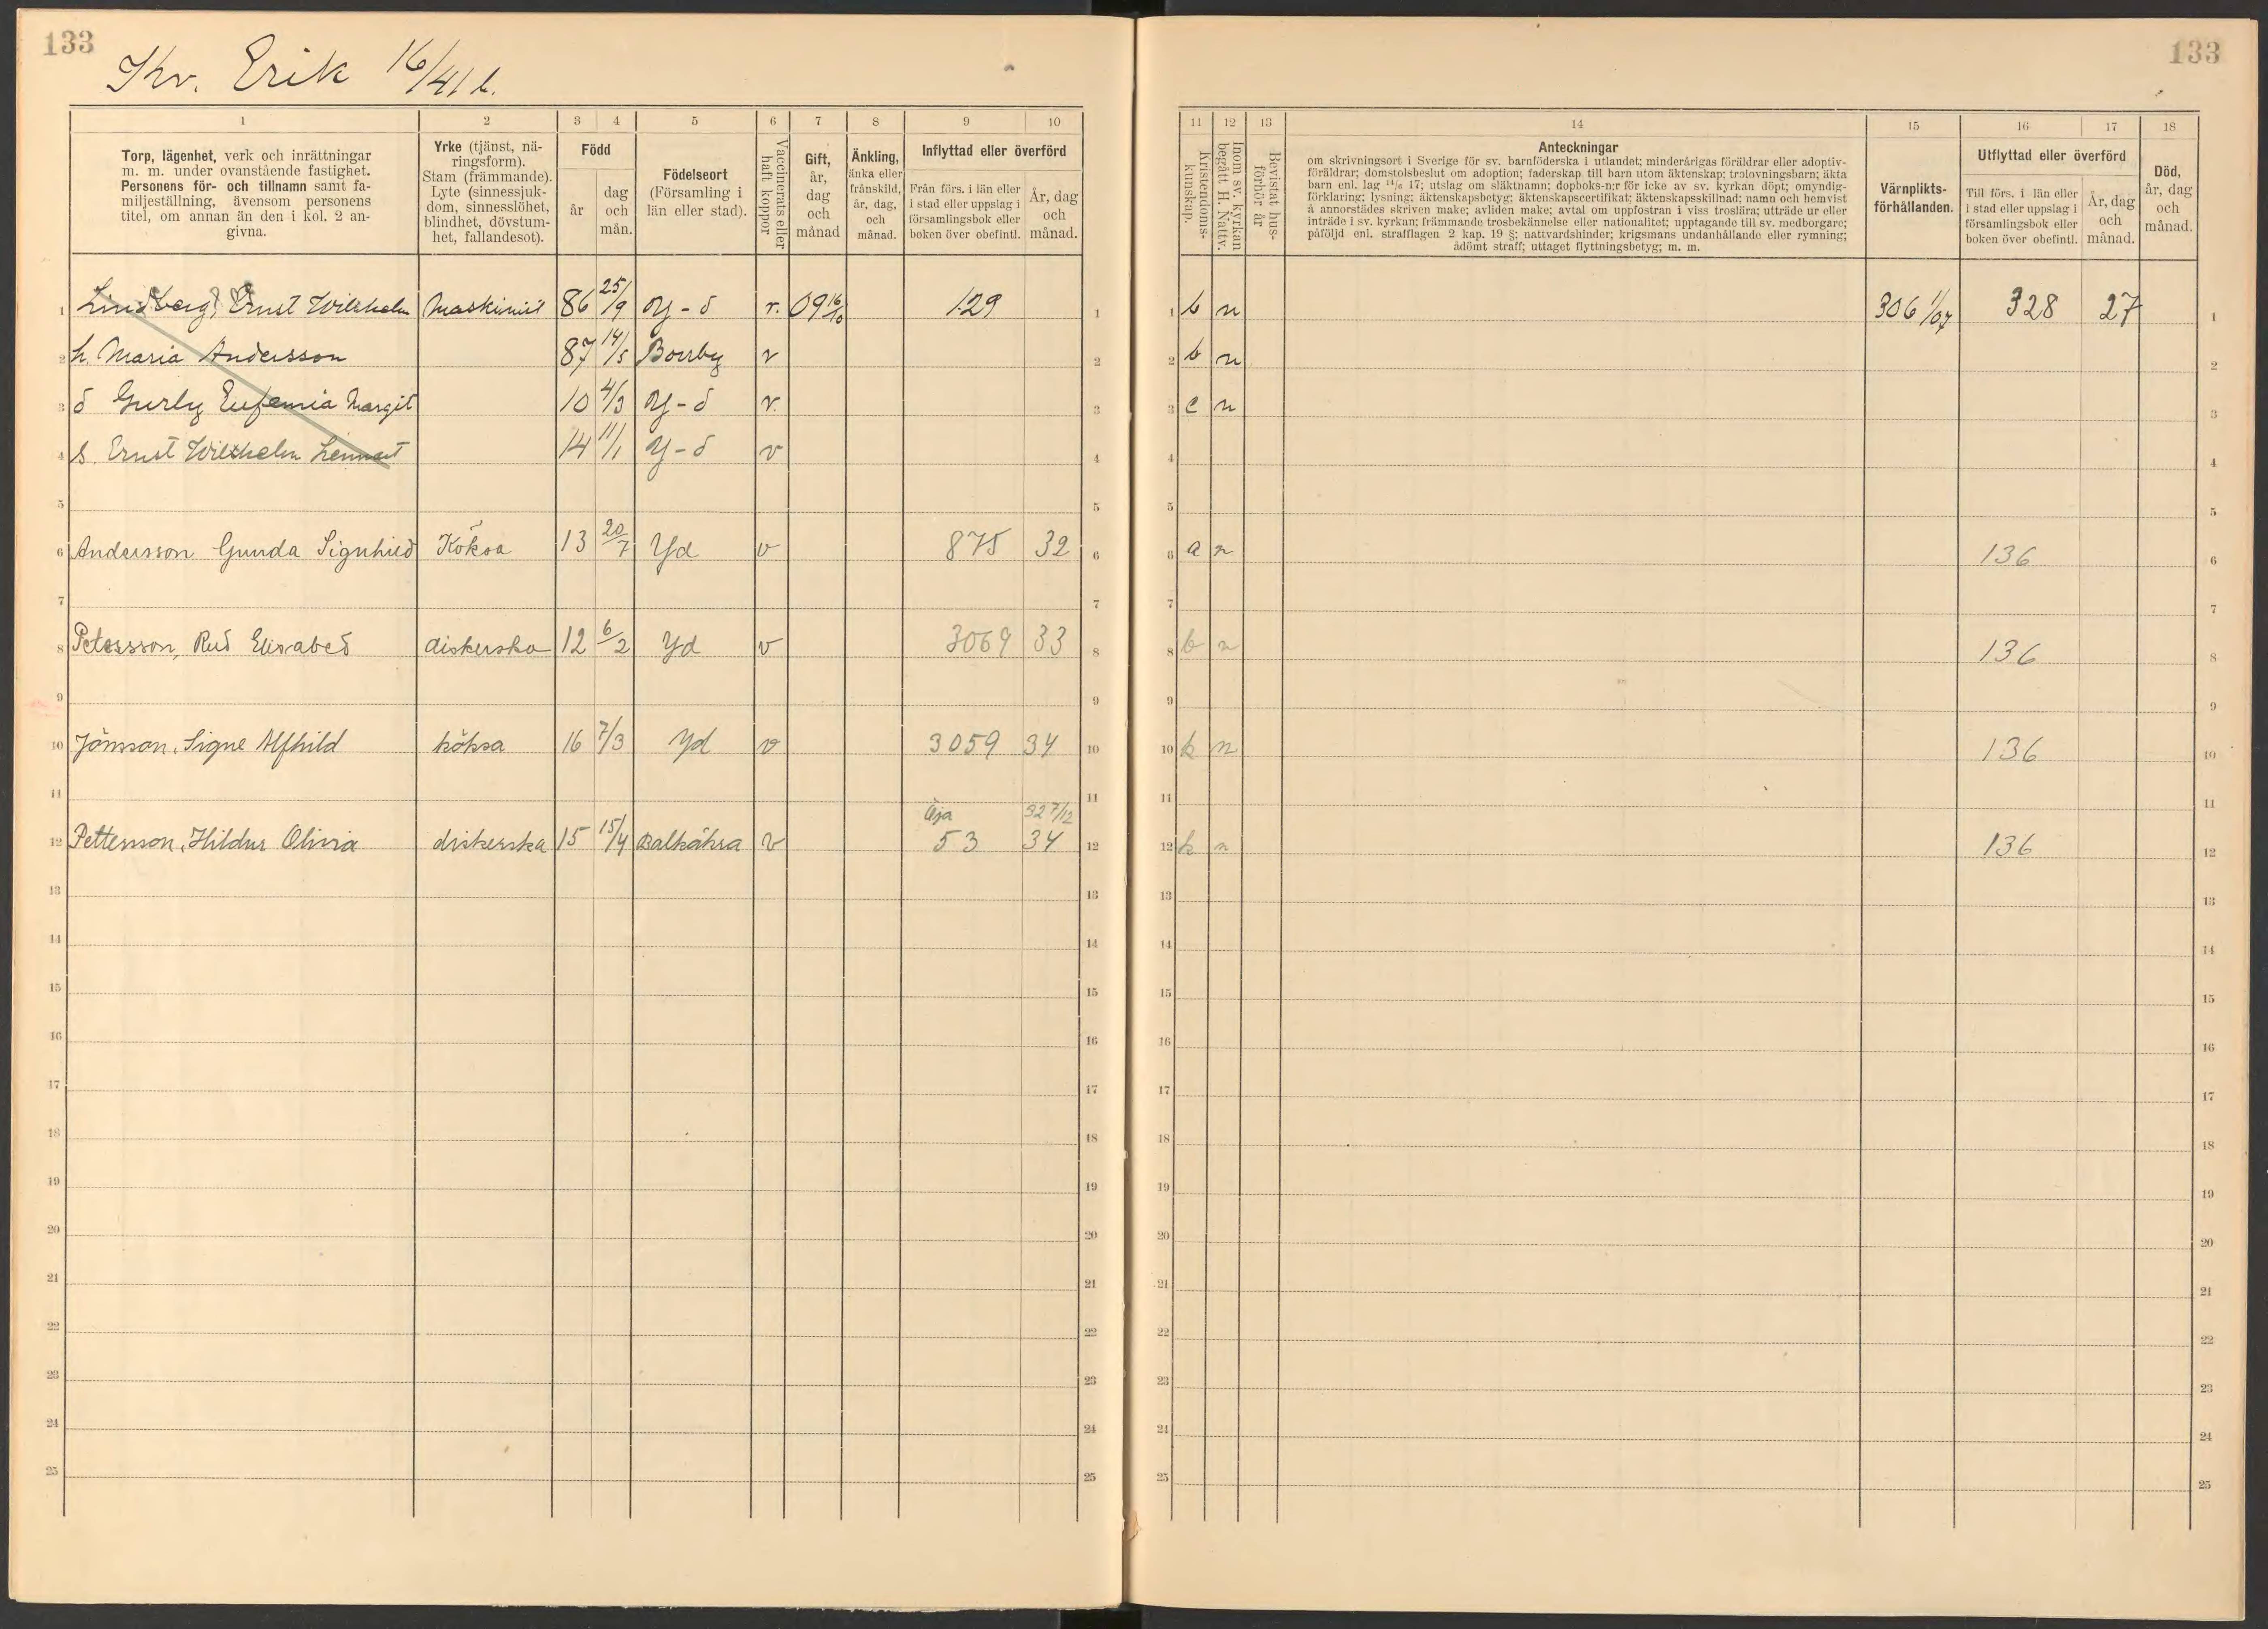 133
Kv. Erik 16/41 b.
1 2 3 4 5 6 7 8 9 10
Torp, lägenhet, verk och inrättningar
m. m. under ovanstående fastighet.
Personens för- och tillnamn samt fa-
miljeställning, ävensom personens
titel, om annan än den i kol. 2 an-
givna.
Yrke (tjänst, nä-
ringsform).
Stam (främmande).
Lyte (sinnessjuk-
dom, sinnesslöhet,
blindhet, dövstum-
het, fallandesot).
Född
år
dag
och
mån.
Födelseort
(Församling i
län eller stad).
Vaccinerats eller
haft koppor
Gift,
år,
dag
och
månad
Änkling,
änka eller
frånskild,
år, dag,
och
månad.
Inflyttad eller överförd
Från förs. i län eller
i stad eller uppslag i
församlingsbok eller
boken över obefintl.
År, dag
och
månad.
1 Lindberg, Ernst Wilhelm Maskinist 86 25/9 Y-d v. 09 16/10 129 1
2 h. Maria Andersson 87 14/5 Borrby v 2
3 d Gurly Eufemia Margit 10 4/3 Y-d v. 3
4 s. Ernst Wilhelm Lennart 14 11/1 Y-d v 4
5 5
6 Andersson Gunda Signhild Köksa 13 20/7 Yd v 875 32 6
7 7
8 Petersson, Rud Elisabed diskerska 12 6/2 Yd v 3069 33 8
9 9
10 Jönsson, Signe Alfhild köksa 16 7/3 Yd v 3059 34 10
11 Öja 32 7/12 11
12 Pettersson, Hildur Olivia diskerska 15 15/4 Balkåkra v 53 34 12
13 13
14 14
15 15
16 16
17 17
18 18
19 19
20 20
21 21
22 22
23 23
24 24
25 25
133
11 12 13 14 15 16 17 18
Kristendoms-
kunskap.
Inom sv. kyrkan
begått H. Nattv.
Bevistat hus-
förhör år
Anteckningar
om skrivningsort i Sverige för sv. barnföderska i utlandet; minderårigas föräldrar eller adoptiv-
föräldrar; domstolsbeslut om adoption; faderskap till barn utom äktenskap; trolovningsbarn; äkta
barn enl. lag 14/6 17; utslag om släktnamn; dopboks-n:r för icke av sv. kyrkan döpt; omyndig-
förklaring; lysning; äktenskapsbetyg; äktenskapscertifikat; äktenskapsskillnad; namn och hemvist
å annorstädes skriven make; avliden make; avtal om uppfostran i viss troslära; utträde ur eller
inträde i sv. kyrkan; främmande trosbekännelse eller nationalitet; upptagande till sv. medborgare;
påföljd enl. strafflagen 2 kap. 19 §; nattvardshinder; krigsmans undanhållande eller rymning;
ådömt straff; uttaget flyttningsbetyg; m. m.
Värnplikts-
förhållanden.
Utflyttad eller överförd
Till förs. i län eller
i stad eller uppslag i
församlingsbok eller
boken över obefintl.
År, dag
och
månad.
Död,
år, dag
och
månad.
1 b n 306 11/07 328 27 1
2 b n 2
3 c n 3
4 4
5 5
6 a n 136 6
7 7
8 b n 136 8
9 9
10 b n 136 10
11 11
12 b n 136 12
13 13
14 14
15 15
16 16
17 17
18 18
19 19
20 20
21 21
22 22
23 23
24 24
25 25